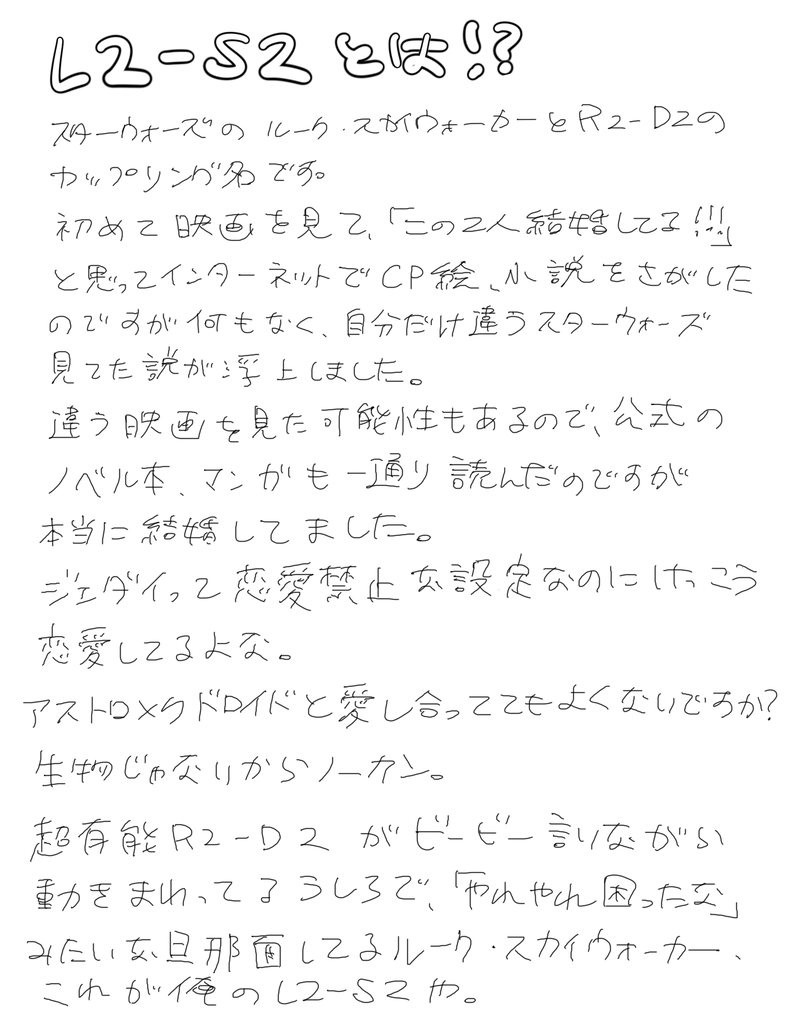 L2-S2とは!?
スターウォーズの ルーク・スカイウォーカーとR2-D2の
カップリング名です。
初めて映画を見て、「この2人結婚してる!!!」
と思ってインターネットでCP絵、小説をさがした
のですが何もなく、自分だけ違うスターウォーズ
見てた説が浮上しました。
違う映画を見た可能性もあるので、公式の
ノベル本、マンガも一通り読んだのですが
本当に結婚してました。
ジェダイって恋愛禁止な設定なのにけっこう
恋愛してるよな。
アストロメクドロイドと愛し合っててもよくないですか?
生物じゃないからノーカン。
超有能R2-D2 がビービー言いながら
動きまわってるうしろで、「やれやれ困ったな」
みたいな旦那面してるルーク・スカイウォーカー、
これが俺のL2-S2や。